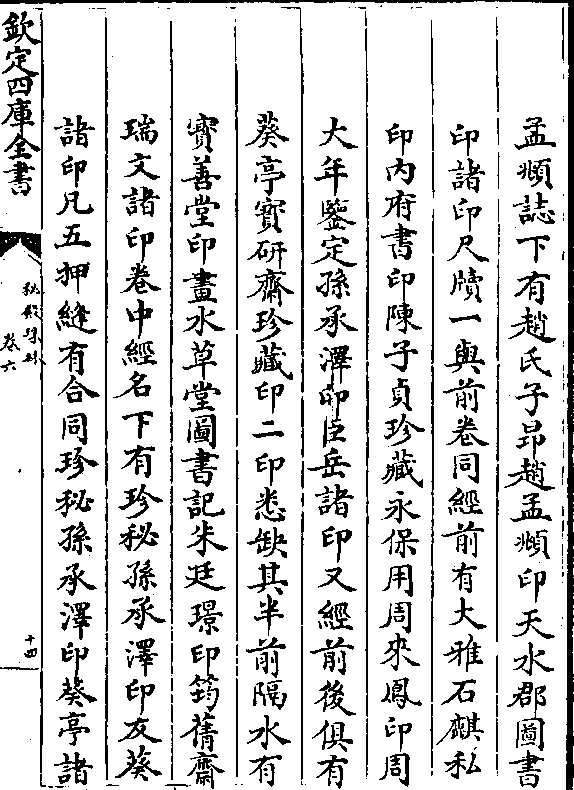 孟頫誌下有趙氏子昻趙孟頫印天水郡圖書
印諸印尺牘一與前卷同經前有大雅石麒私
印內府書印陳子貞珍藏永保用周來鳳印周
大年鑒定孫承澤印臣岳諸印又經前後俱有
葵亭寶研齋珍藏印二印悉缺其半前隔水有
寳善堂印畫水草堂圖書記朱廷璟印筠舊齋
瑞文諸印卷中經名下有珍秘孫承澤印友葵
諸印凡五押縫有合同珍秘孫承澤印葵亭諸
欽定四庫全書
秘殿珠林
卷六
十四